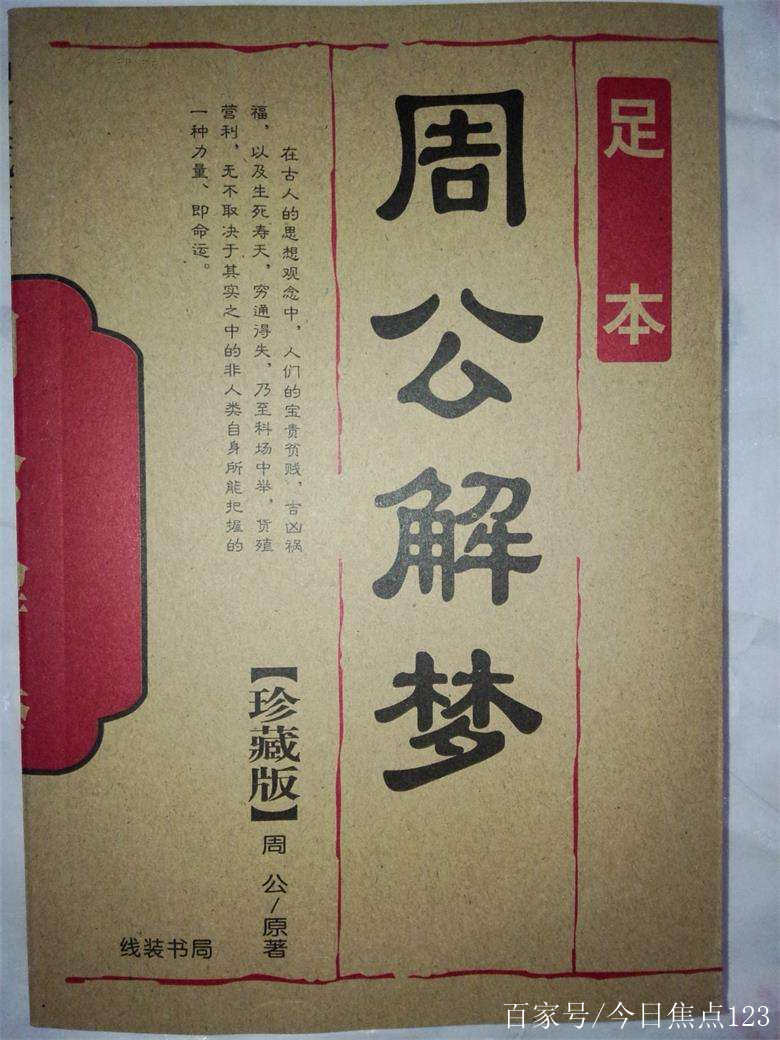 足本
周公解梦
在古人的思想观念中，人们的宝贵贫贱，吉凶祸
福，以及生死寿天，穷通得失，乃至科场中举，货殖
营利，无不取决于其实之中的非人类自身所能把握的
一种力量、即命运。
【珍藏版】
周公/原著
线装书局
百家号/今日焦点123